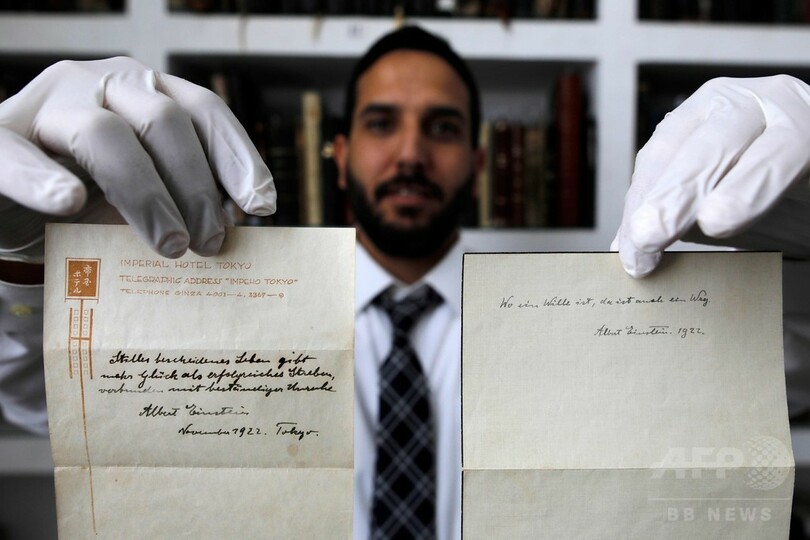 帝国
ホテル
IMPERIAL HOTEL TOKYO
TELEGRAPHIC ADDRESS "IMPEHO TOKYO"
TELEPHONE GINZA
Stilles bescheidenes Leben gibt
mehr Glück als erfolgreiches Streben,
verbunden mit beständiger Unruhe
Albert Einstein
November 1922. Tokyo.
Wo ein Wille ist, da ist auch ein Weg.
Albert Einstein. 1922.
AFP
BB NEWS